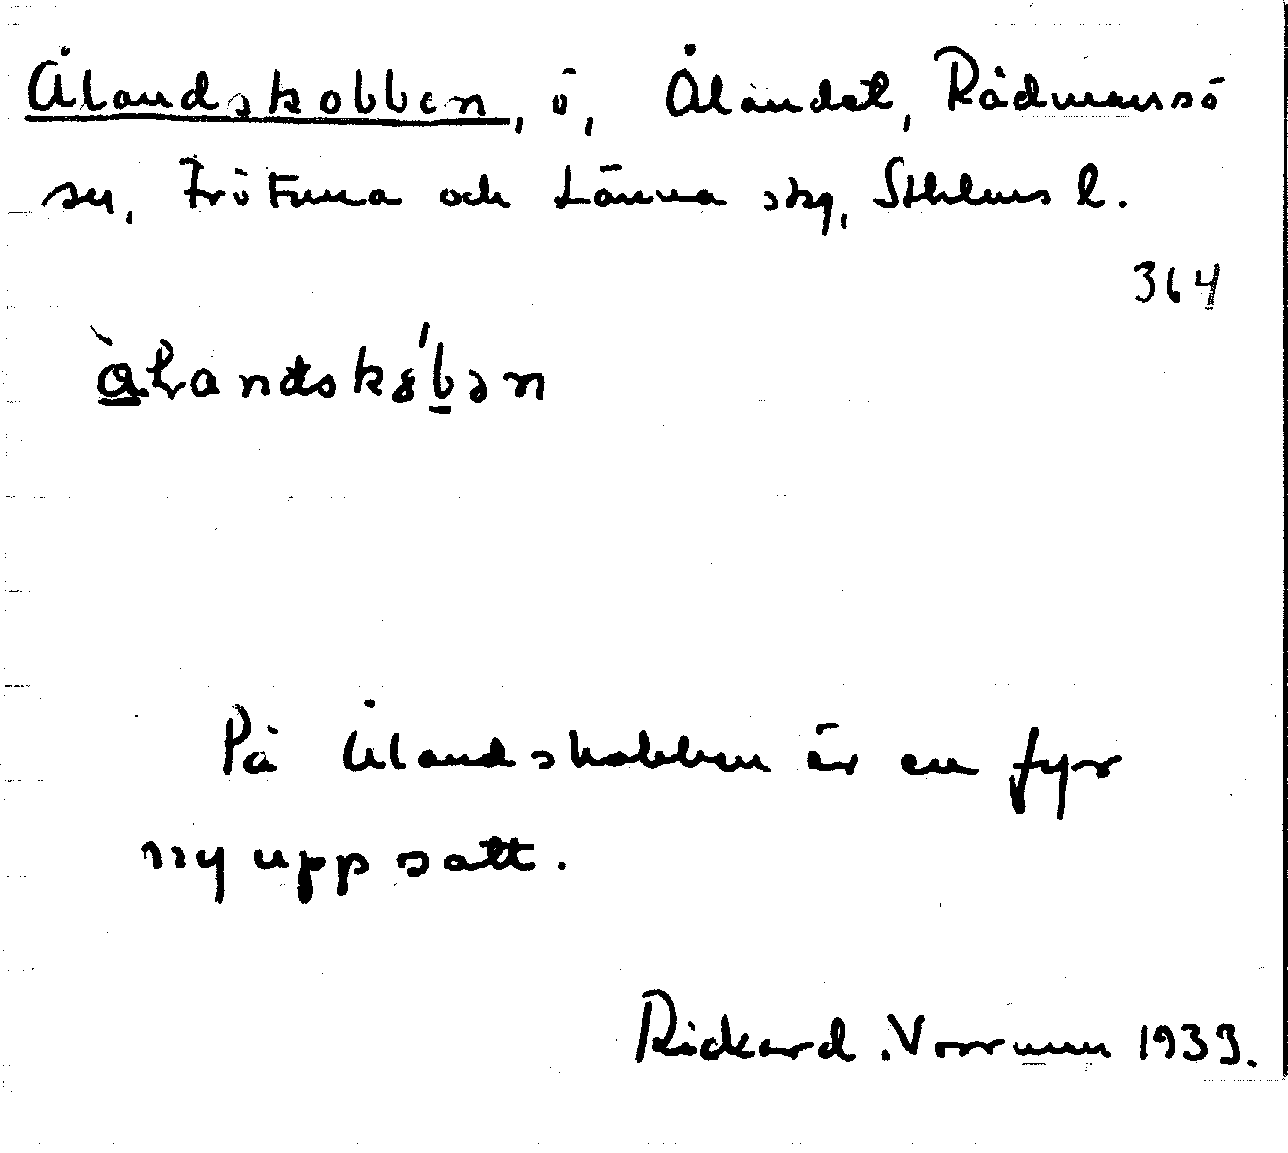 Ålandskobben, ö, Ålandet, Rådmansö
sn, Frötuna och Länna skg, Sthlms l.
364
På Ålandskobben är en fyr
ny upp satt.
Rickard 1933.